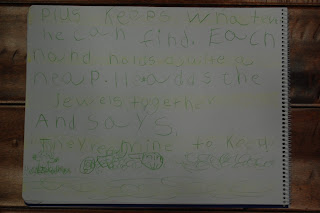 plus keeps what
he can find. Each
hand holds quite a
heap. Hoards the
Jewels together
And says,
"They're mine to keep